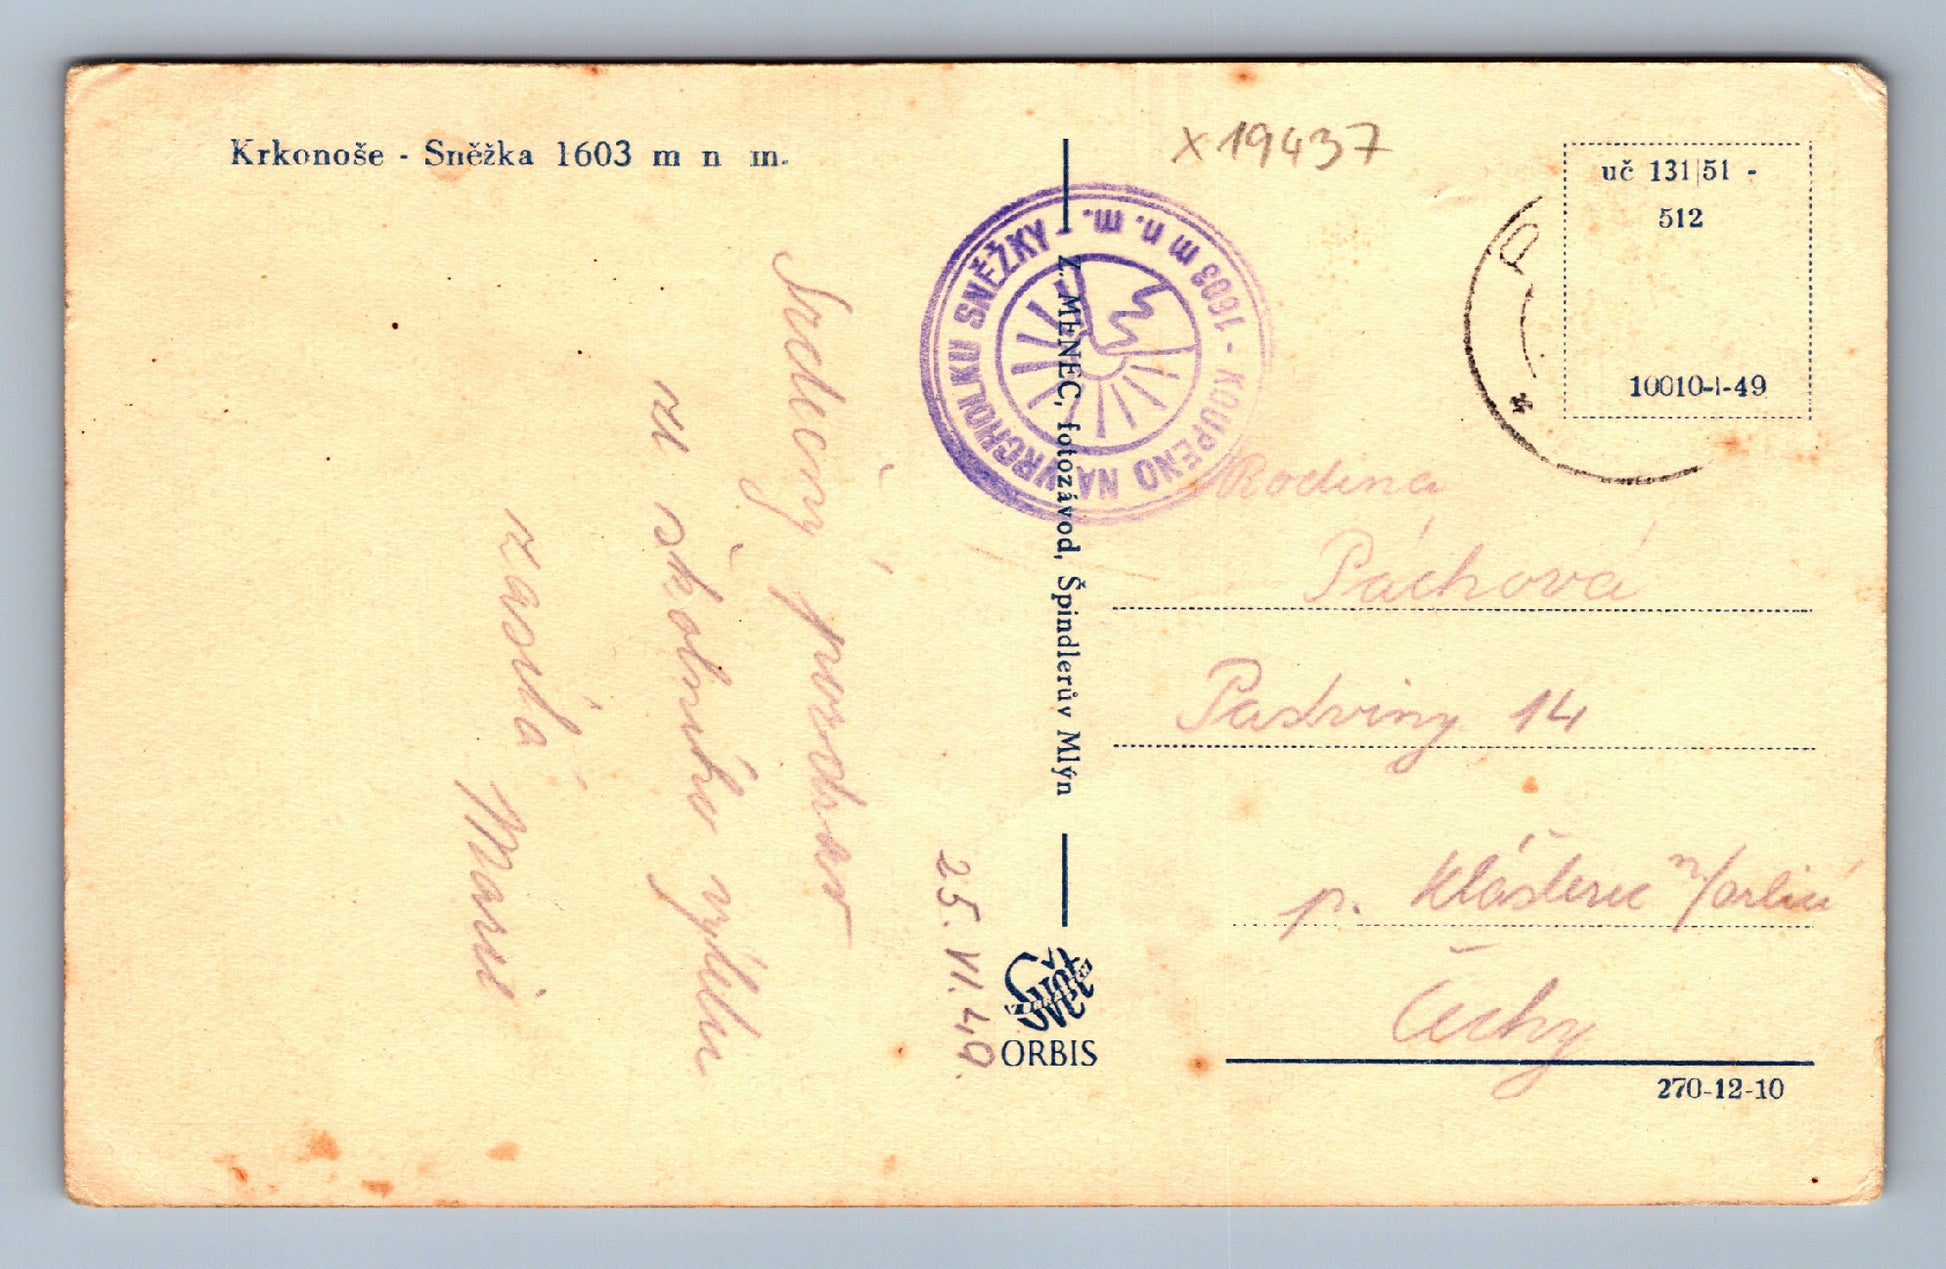 Krkonoše - Sněžka 1603 m n m.
Srdečný pozdrav
ze školního výletu
zasílá Marie
25. VI. 49.
KOUPENO NA VRCHOLKU SNĚŽKY - 1603 m n. m. -
Z. MENEC, fotozávod, Špindlerův Mlýn
ORBIS
x 19437
uč 131|51 -
512
10010-I-49
Rodina
Páchová
Pastviny 14
p. Klášterec n/Orlicí
Čechy
270-12-10